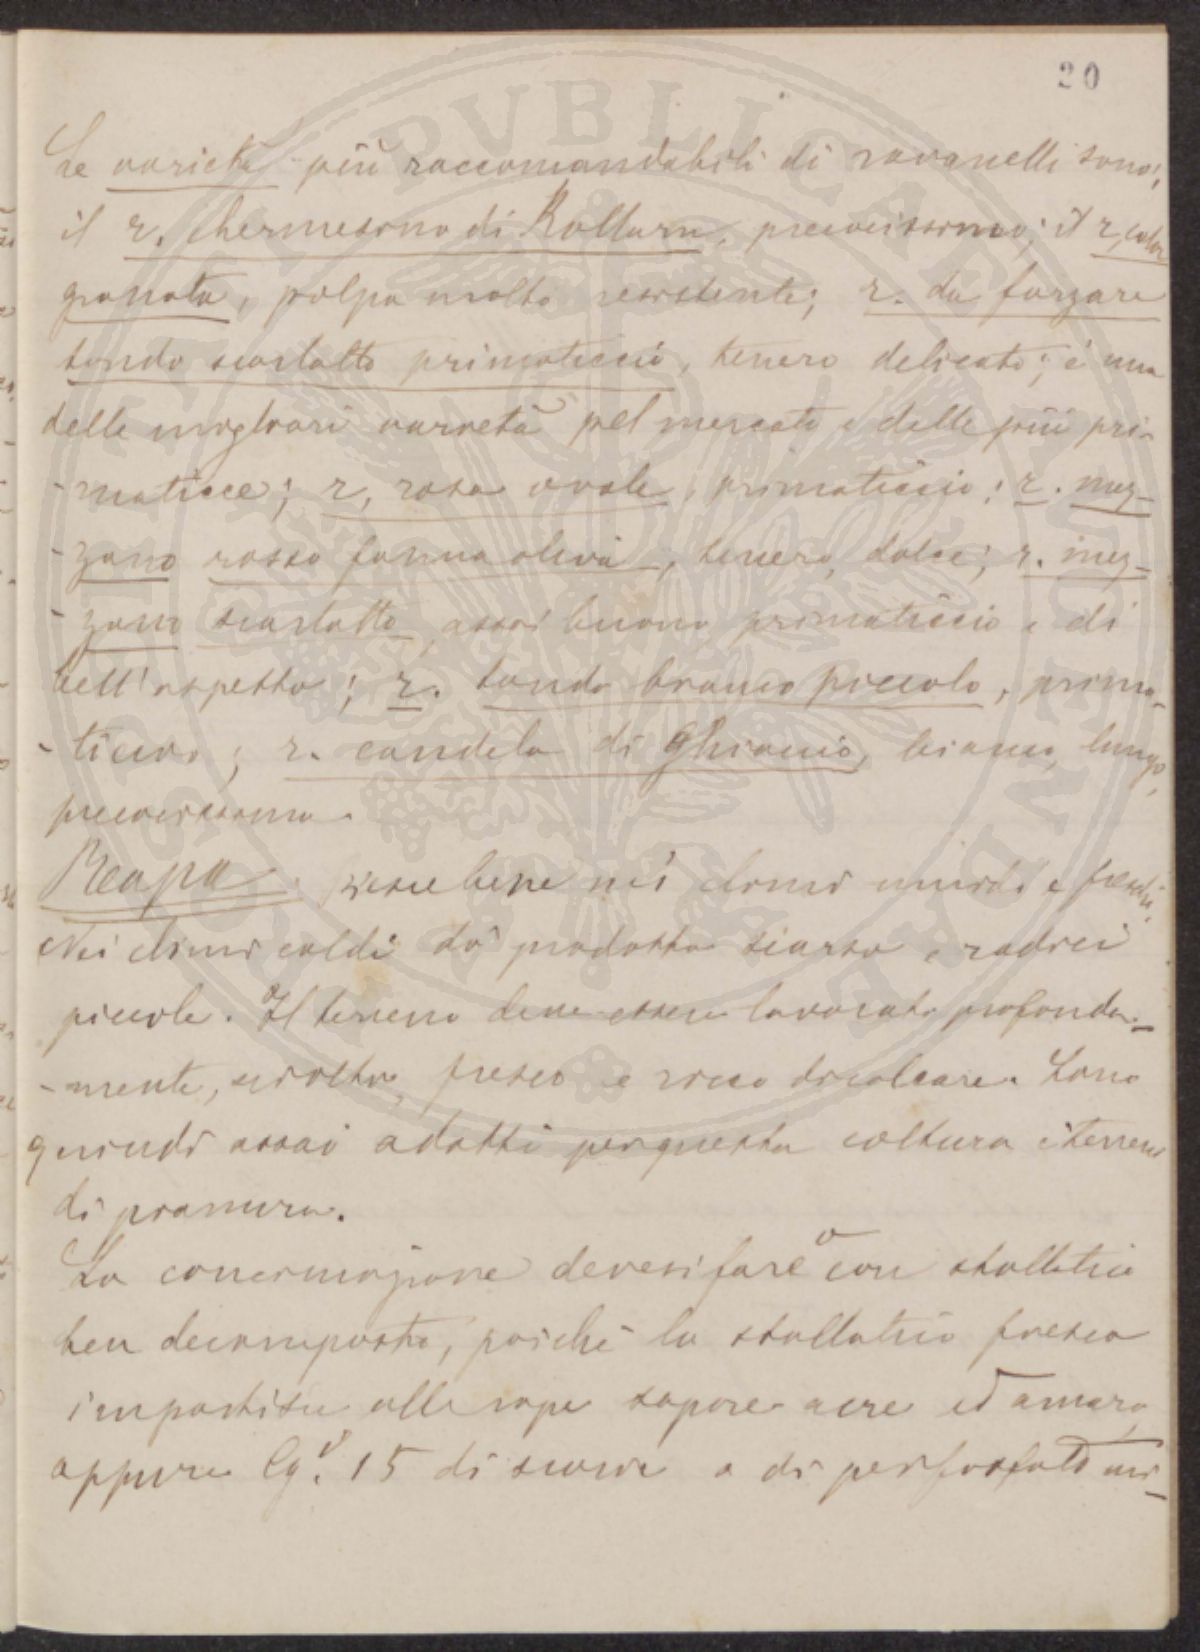 20
Le varietà più raccomandabili di ravanelli sono:
il r. chermesono di Rollara, precocissimo; il r, color
granata, polpa molto resistente; r. da forzare
tondo scarlatto primaticcio, tenero delicato; è una
delle migliori varietà pel mercato e delle più pri-
-maticce; r, rosa ovale, primaticcio; r. mez-
-zano rosso forma oliva, tenero, dolce; r. mez-
-zano scarlatto, assai buono, primaticcio e di
bell'aspetto; r. tondo bianco piccolo, prima-
-ticcio; r. candela di Ghiaccio, bianco, lungo,
precocissimo.
Reapa. riesce bene nei climi umidi e freschi.
Nei climi caldi dà prodotto scarso e radici
piccole. Il terreno deve essere lavorato profonda-
-mente, sciolto, fresco e ricco di calcare. Sono
quindi assai adatti per questa coltura i terreni
di pianura.
La concimazione devesi fare o con stallatico
ben decomposto, poichè lo stallatico fresco
impartisce alle rape sapore acre ed amaro,
oppure Cg.i 15 di scorie o di perfosfato mi-